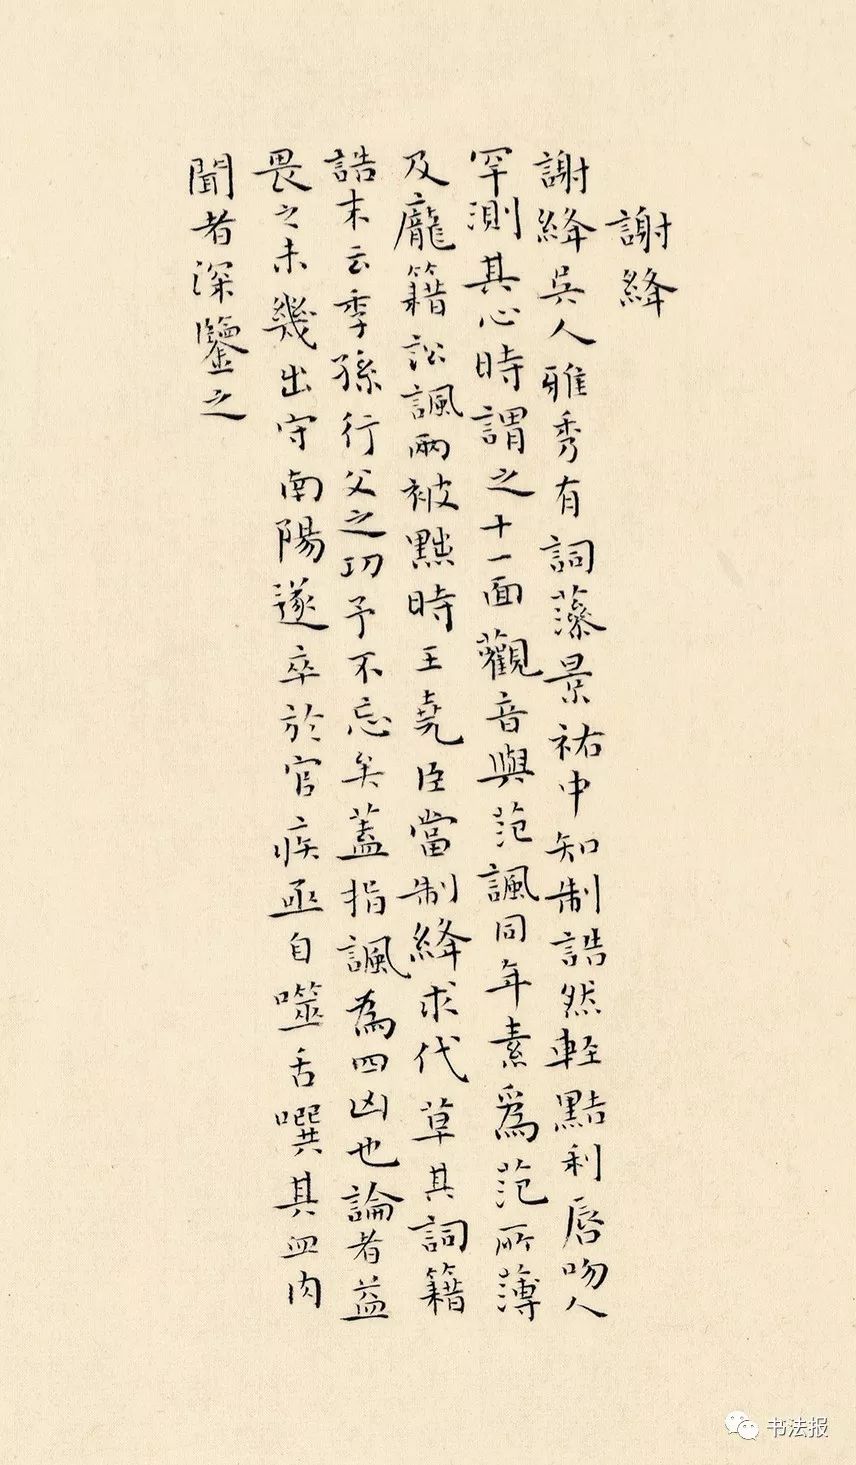 謝絳
謝絳吳人雅秀有詞藻景祐中知制誥然輕黠利唇吻人
罕測其心時謂之十一面觀音與范諷同年素爲范所薄
及龐籍訟諷兩被黜時王堯臣當制絳求代草其詞籍
誥末云季孫行父之功予不忘矣蓋指諷為四凶也論者益
畏之未幾出守南陽遂卒於官疾亟自噬舌噀其血肉
聞者深鑒之
书法报